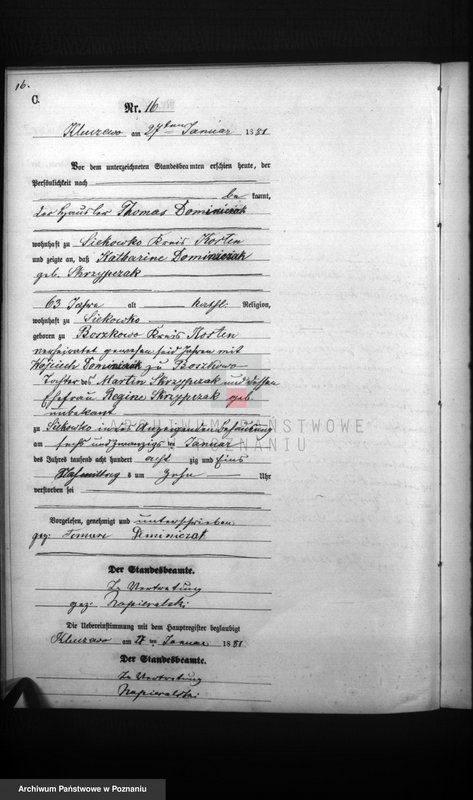 16.
C.
Nr. 16
Kluczewo am 27ten Januar 1881
Vor dem unterzeichneten Standesbeamten erschien heute, der
Persönlichkeit nach
be kannt,
der Häusler Thomas Dominiczak
wohnhaft zu Siekowko Kreis Kosten
und zeigte an, daß Katharine Dominiczak
geb. Skrzypczak
63 Jahre alt kathl: Religion,
wohnhaft zu Siekowko
geboren zu Boszkowo Kreis Kosten
verheiratet gewesen seid Jahren mit
Wojciech Dominiczak zu Boszkowo
Tochter des Martin Skrzypczak und dessen
Ehefrau Regine Skrzypczak geb.
unbekannt
zu Siekowko in des Anzeigenden Behausung
am fünf und zwanzigs ten Januar
des Jahres tausend acht hundert acht zig und Eins
Nachmittag s um Zehn Uhr
verstorben sei
Vorgelesen, genehmigt und unterschrieben
gez: Tomasz Dominiczak
Der Standesbeamte.
In Vertretung
gez: Napieralski
Die Uebereinstimmung mit dem Hauptregister beglaubigt
Kluczewo am 27 ten Januar 1881
Der Standesbeamte.
In Vertretung
Napieralski
ARCHIWUM PAŃSTWOWE
W POZNANIU
Archiwum Państwowe w Poznaniu